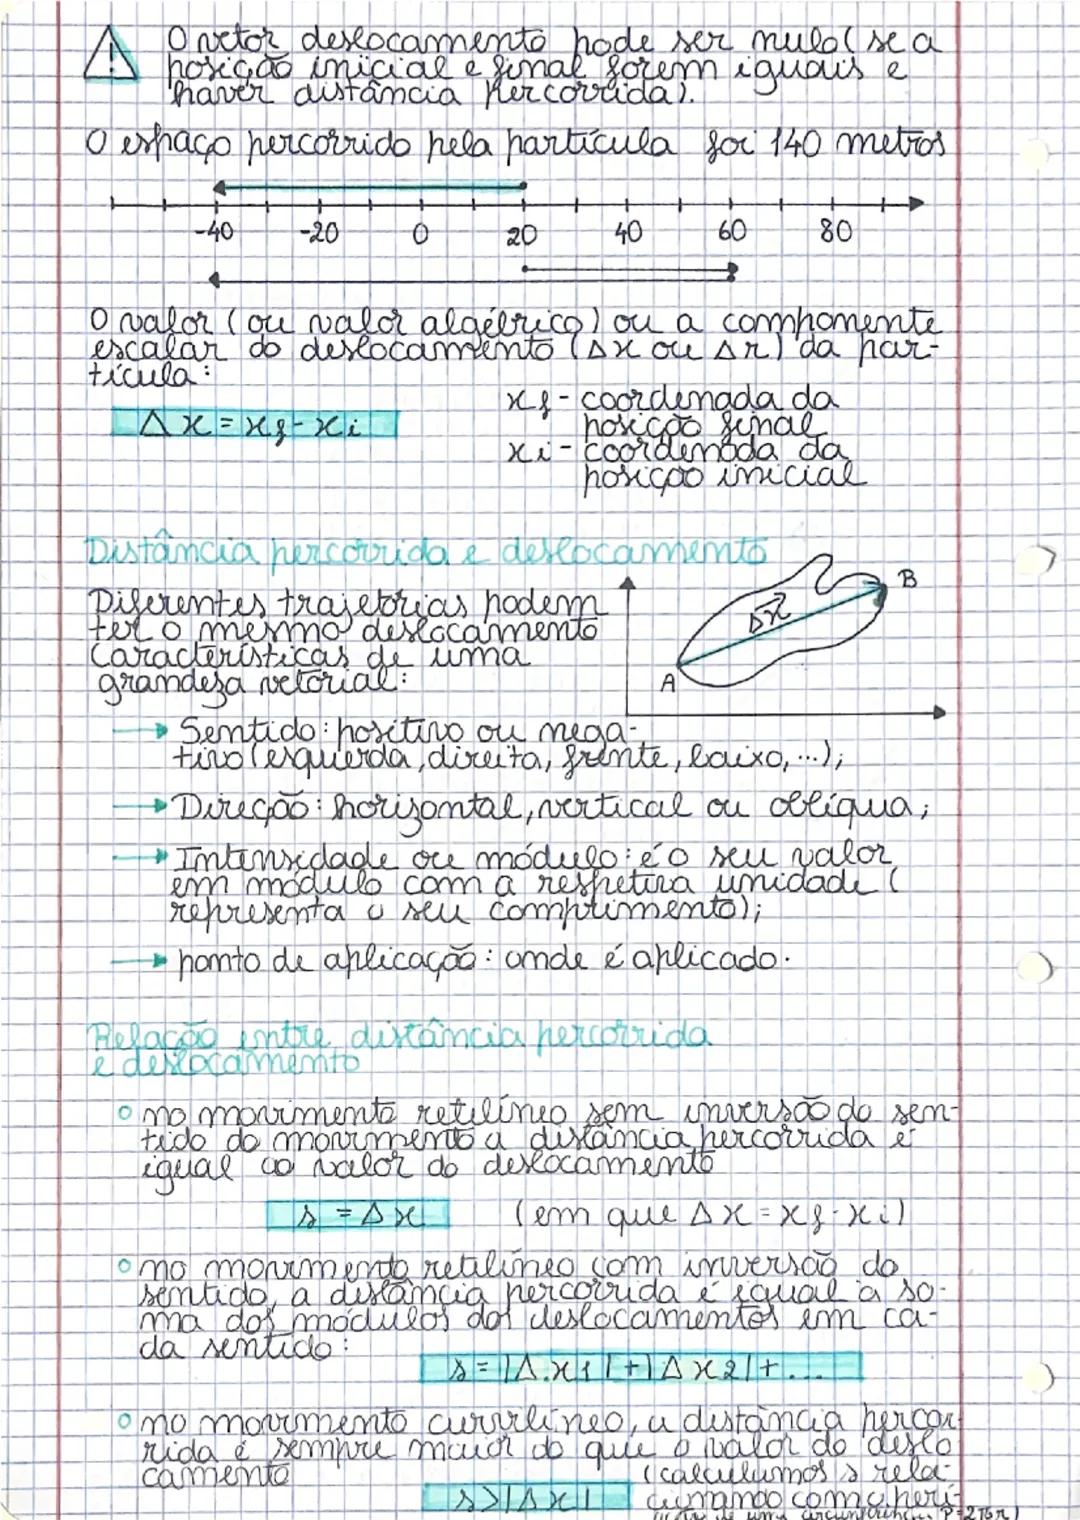 O vetor deslocamento pode ser nulo( se a
posição inicial e final forem iguais e
haver distância percorrida).
O espaço percorrido pela partícula foi 140 metros
-40 -20 0 20 40 60 80
O valor (ou valor algébrico) ou a componente
escalar do deslocamento (Δx ou Δr) da par-
tícula:
Δx = xf - xi
xf - coordenada da
posição final
xi - coordenada da
posição inicial
Distância percorrida e deslocamento
Diferentes trajetórias podem
ter o mesmo deslocamento
Características de uma
grandeza vetorial:
A
B
→ Sentido: positivo ou nega-
tivo (esquerda, direita, frente, baixo, ...);
→ Direção: horizontal, vertical ou oblíqua;
→ Intensidade ou módulo: é o seu valor
em módulo com a respetiva unidade (
representa o seu comprimento);
→ ponto de aplicação: onde é aplicado.
Relação entre distância percorrida
e deslocamento
° no movimento retilíneo sem inversão do sen-
tido do movimento a distância percorrida é
igual ao valor do deslocamento
s = Δx (em que Δx = xf - xi)
° no movimento retilíneo com inversão do
sentido, a distância percorrida é igual à so-
ma dos módulos dos deslocamentos em ca-
da sentido:
s = |Δx1| + |Δx2| + ...
° no movimento curvilíneo, a distância percor-
rida é sempre maior do que o valor do deslo
camento
(calculamos s rela-
s > |Δx|
cionando com o perí-
circunferência P=2πr)